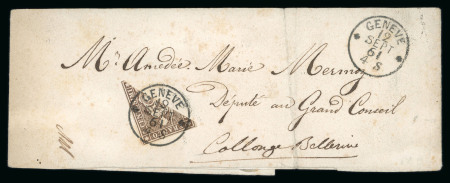 GENEVE
12
SEPT
61
4 S
Mr. Amedée Marie Mermoz
GENEVE
12
Député au Grand Conseil
Collonge Bellerive